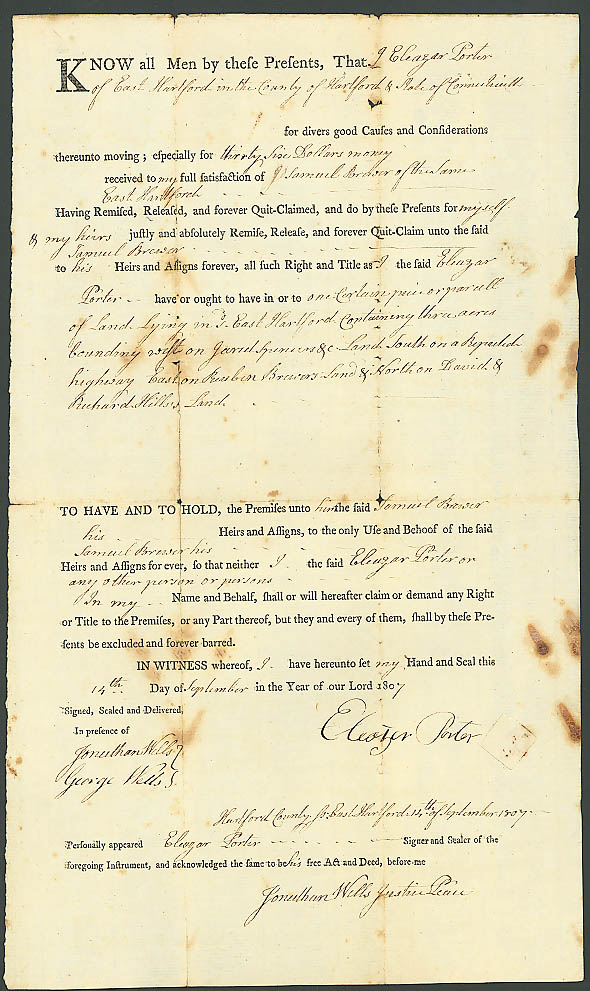 KNOW all Men by theſe Preſents, That I Eleazar Porter
of East Hartford in the County of Hartford & State of Connecticutt
for divers good Cauſes and Conſiderations
thereunto moving; eſpecially for thirty Six Dollars money
received to my full ſatisfaction of Samuel Brewer of the Same
East Hartford
Having Remiſed, Releaſed, and forever Quit-Claimed, and do by theſe Preſents for myself
& my heirs juſtly and abſolutely Remiſe, Releaſe, and forever Quit-Claim unto the ſaid
Samuel Brewer
to his Heirs and Aſſigns forever, all ſuch Right and Title as I the ſaid Eleazar
Porter have or ought to have in or to one Certain peice or parcell
of Land Lying in sd. East Hartford Containing three acres
bounding west on Spencers &c Land South on a Reputed
highway East on Reuben Brewers Land & North on David &
Richard Hills Land
TO HAVE AND TO HOLD, the Premiſes unto him the ſaid Samuel Brewer
his Heirs and Aſſigns, to the only Uſe and Behoof of the ſaid
Samuel Brewer his
Heirs and Aſſigns for ever, ſo that neither I the ſaid Eleazar Porter or
any other person or persons
In my Name and Behalf, ſhall or will hereafter claim or demand any Right
or Title to the Premiſes, or any Part thereof, but they and every of them, ſhall by theſe Pre-
ſents be excluded and forever barred.
IN WITNESS whereof, I have hereunto ſet my Hand and Seal this
14th Day of September in the Year of our Lord 1807
Signed, Sealed and Delivered,
In preſence of
Eleazer Porter
Jonathan Wells
George Wells
Hartford County Ss. East Hartford 14th of September 1807
Perſonally appeared Eleazar Porter Signer and Sealer of the
foregoing Inſtrument, and acknowledged the ſame to be his free Act and Deed, before me
Jonathan Wells Justice Peace